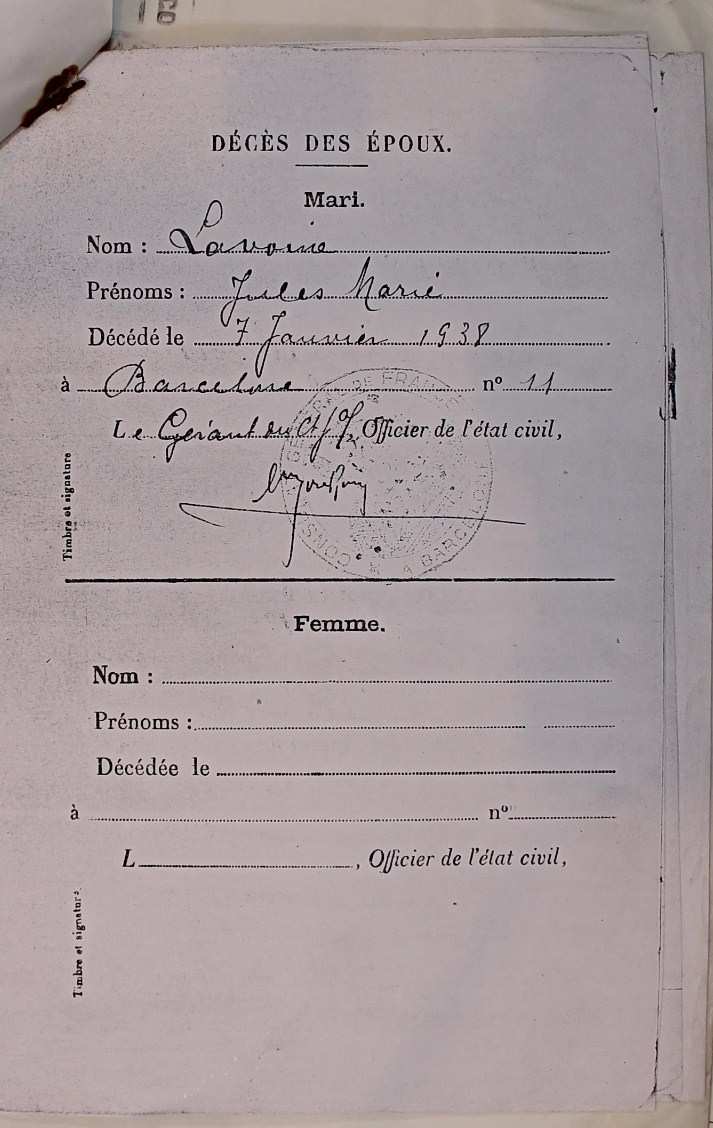 DÉCÈS DES ÉPOUX.
Mari.
Nom : Lavoine
Prénoms : Jules Marie
Décédé le 7 Janvier 1938
à Barcelone nº 11
Le Gérant du Ct Gl, Officier de l'état civil,
Timbre et signature
CONSULAT GÉNÉRAL DE FRANCE A BARCELONE
Femme.
Nom :
Prénoms :
Décédée le
à nº
L , Officier de l'état civil,
Timbre et signature